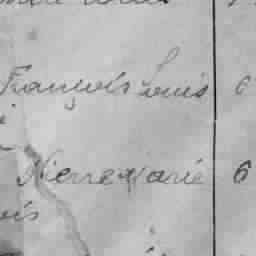 François Louis 6
Pierre Marie 6
ois